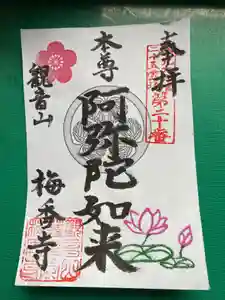 奉拝
第二十番
本尊
阿弥陀如来
観音山
梅香寺